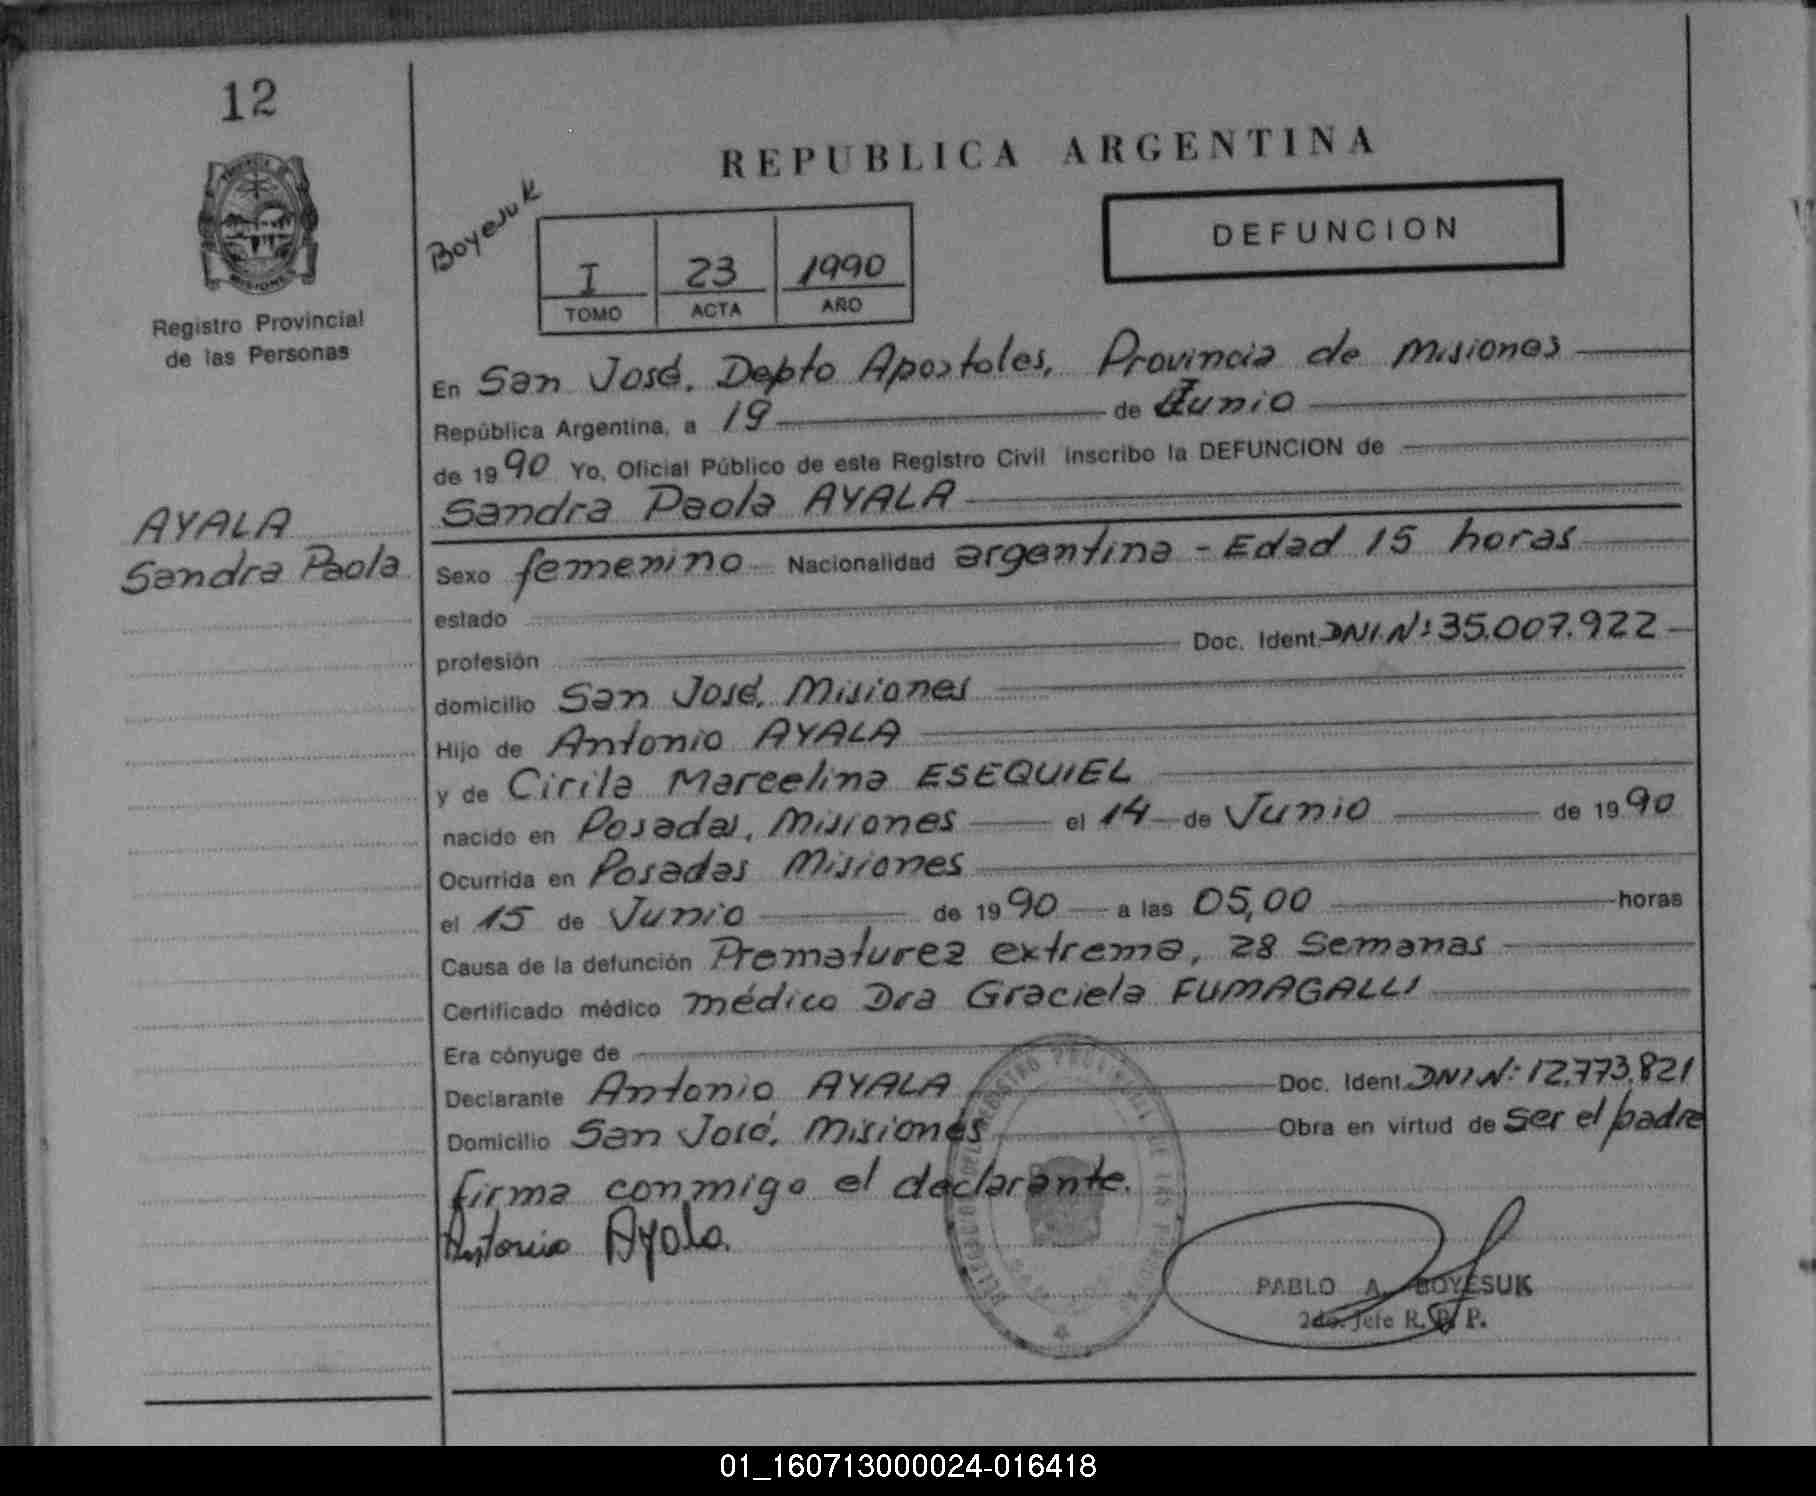 12
REPUBLICA ARGENTINA
Boyesuk
DEFUNCION
I 23 1990
TOMO ACTA AÑO
MISIONES
Registro Provincial
de las Personas
En San José, Depto Apostoles, Provincia de Misiones
República Argentina, a 19 de Junio
de 1990 Yo, Oficial Público de este Registro Civil inscribo la DEFUNCION de
AYALA
Sandra Paola
Sandra Paola AYALA
Sexo femenino Nacionalidad argentina - Edad 15 horas
estado
profesión Doc. Ident. DNI.Nº: 35.007.922
domicilio San José, Misiones
Hijo de Antonio AYALA
y de Cirila Marcelina ESEQUIEL
nacido en Posadas, Misiones el 14 de Junio de 1990
Ocurrida en Posadas Misiones
el 15 de Junio de 1990 a las 05,00 horas
Causa de la defunción Prematurez extrema, 28 Semanas
Certificado médico médico Dra Graciela FUMAGALLI
Era cónyuge de
Declarante Antonio AYALA Doc. Ident. DNI Nº: 12.773.821
Domicilio San José, Misiones Obra en virtud de ser el padre
firma conmigo el declarante.
Antonio Ayala.
PABLO A. BOYESUK
2do. Jefe R. P. P.
01_160713000024-016418